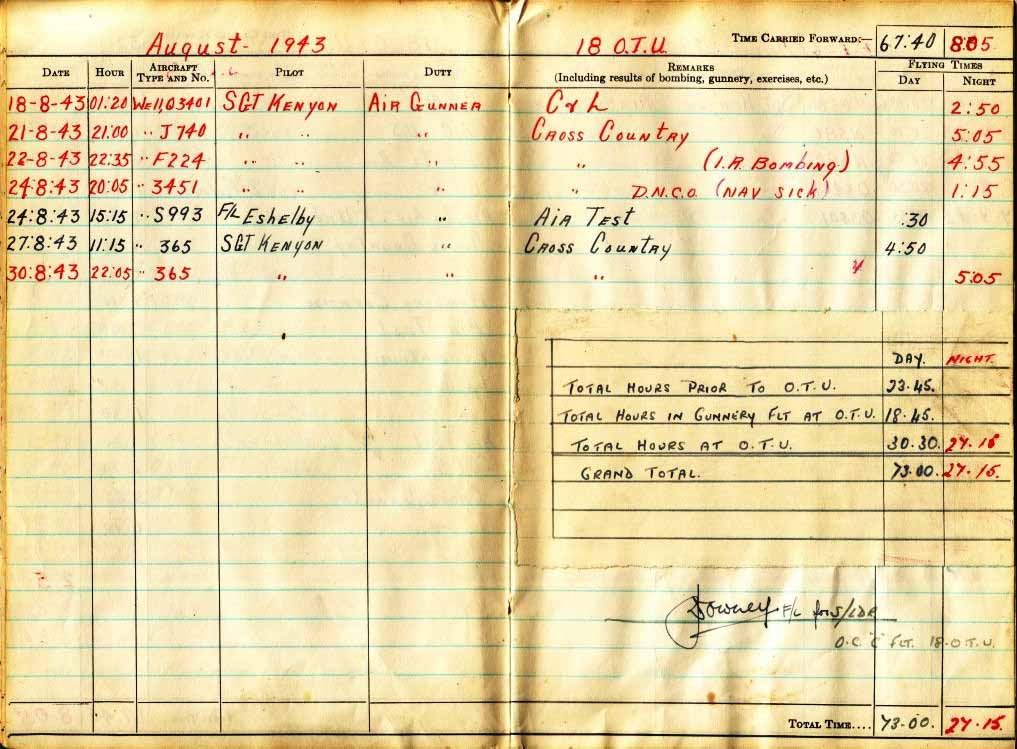 August - 1943 18 O.T.U. TIME CARRIED FORWARD:— 67:40 8:05
DATE HOUR AIRCRAFT TYPE AND NO. PILOT DUTY REMARKS (Including results of bombing, gunnery, exercises, etc.) FLYING TIMES DAY NIGHT
18-8-43 01:20 Well,O3401 SGT KENYON AIR GUNNER C & L 2:50
21-8-43 21:00 " J740 " " " CROSS COUNTRY 5:05
22-8-43 22:35 " F224 " " " " (I.R. BOMBING) 4:55
24:8:43 20:05 " 3451 " " " " D.N.C.O. (NAV SICK) 1:15
24:8:43 15:15 " S993 F/L ESHELBY " AIR TEST :30
27:8:43 11:15 " 365 SGT KENYON " CROSS COUNTRY 4:50
30:8:43 22:05 " 365 " " " 5:05
DAY. NIGHT.
TOTAL HOURS PRIOR TO O.T.U. 23.45.
TOTAL HOURS IN GUNNERY FLT AT O.T.U. 18.45.
TOTAL HOURS AT O.T.U. 30.30. 27.15
GRAND TOTAL. 73.00. 27.15.
Downey F/L for S/LDR
O.C. C FLT. 18.O.T.U.
TOTAL TIME.... 73.00. 27.15.